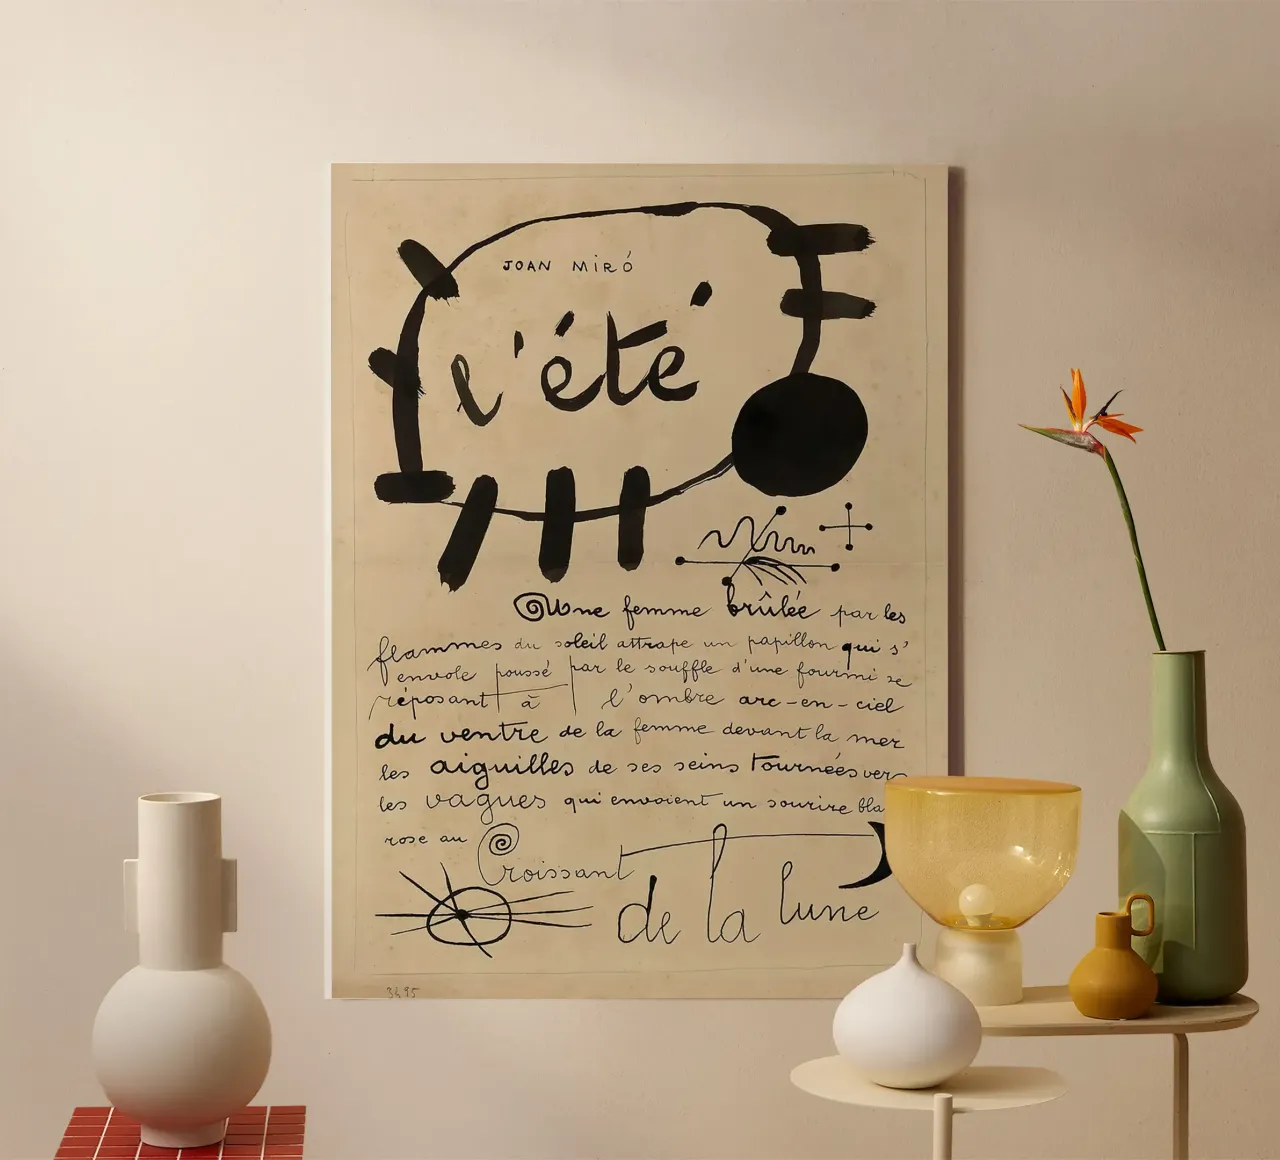 JOAN MIRÓ
l'été
Une femme brûlée par les
flammes du soleil attrape un papillon qui s'
envole poussé par le souffle d'une fourmi se
réposant à l'ombre arc-en-ciel
du ventre de la femme devant la mer
les aiguilles de ses seins tournées vers
les vagues qui envoient un sourire
rose au Croissant
de la lune